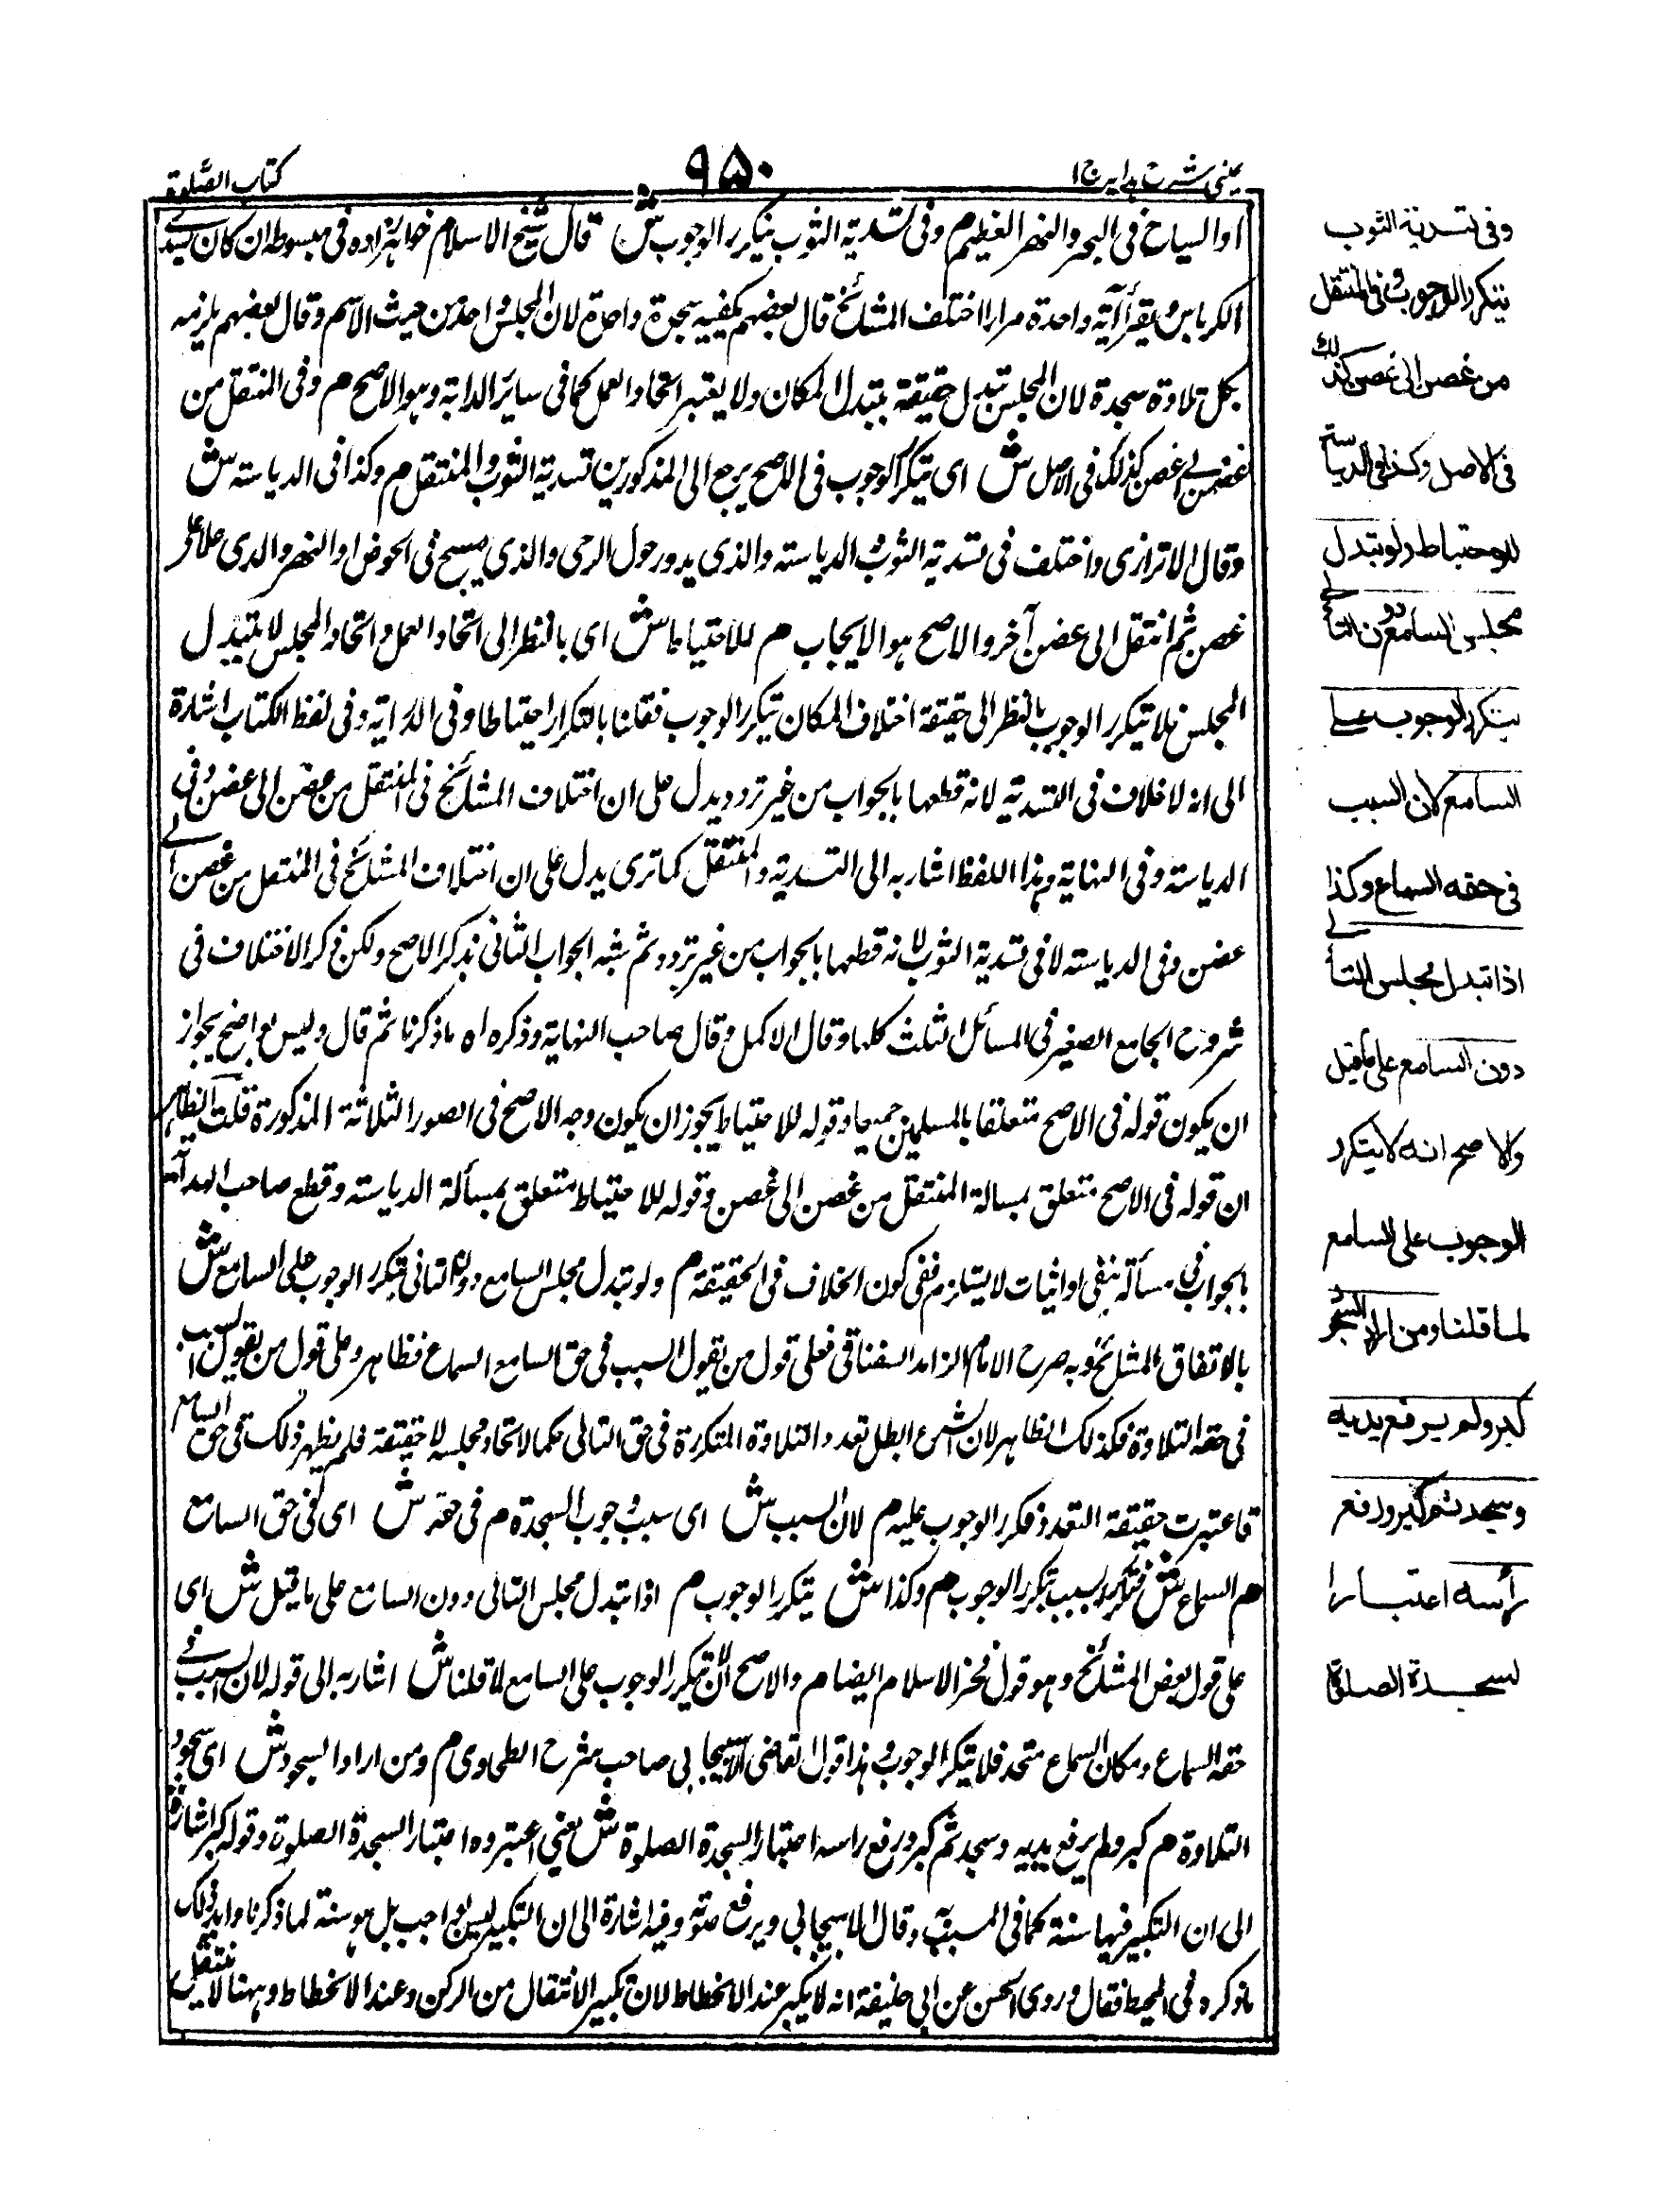 عینی شرح ہدایہ ج ۱
۹۵۰
کتاب الصلوة
او السباح فی البحر والنهر العظیم م وفی تسدیة الثوب یتکرر الوجوب ش قال شیخ الاسلام خواہر زاده فی مبسوطه ان کان یسدی
الکرباس ویقرأ آیة واحدة مرارا اختلف المشائخ قال بعضهم یکفیه سجدة واحدة لان المجلس واحد من حیث الاسم وقال بعضهم یلزمه
بکل تلاوة سجدة لان المجلس تبدل حقیقة بتبدل المکان ولا یعتبر اتحاد العمل کما فی سائر الدابة وہو الاصح م وفی المنتقل من
غصن الی غصن کذلک فی الاصل ش ای یتکرر الوجوب فی الاصح یرجع الی المذکورین تسدیة الثوب والمنتقل م وکذا فی الدیاسة ش
وقال الاترازی واختلف فی تسدیة الثوب والدیاسة والذی یدور حول الرحی والذی یسبح فی الحوض او النهر والذی تلا علی
غصن ثم انتقل الی غصن آخر والاصح ہو الایجاب م للاحتیاط ش ای بالنظر الی اتحاد العمل واتحاد المجلس لا یتبدل
المجلس فلا یتکرر الوجوب بالنظر الی حقیقة اختلاف المکان یتکرر الوجوب فقلنا بالتکرار احتیاطا وفی الدرایة وفی لفظ الکتاب اشارة
الی انه لا خلاف فی التسدیة لانه قطعها بالجواب من غیر تردد ویدل علی ان اختلاف المشائخ فی المنتقل من غصن الی غصن وفی
الدیاسة وفی النهایة وہذا اللفظ اشار به الی التسدیة والمنتقل کما تری یدل علی ان اختلاف المشائخ فی المنتقل من غصن الی
غصن وفی الدیاسة لا فی تسدیة الثوب لانه قطعها بالجواب من غیر تردد ثم شبه الجواب الثانی بذکر الاصح ولکن ذکر الاختلاف فی
شروح الجامع الصغیر فی المسائل الثلث کلها وقال الاکمل وقال صاحب النهایة وذکره اه ما ذکرنا ثم قال ولیس بواضح بجواز
ان یکون قوله فی الاصح متعلقا بالمسلمین جمیعا وقوله للاحتیاط یجوز ان یکون وجه الاصح فی الصور الثلاثة المذکورة قلت الظاہر
ان قوله فی الاصح متعلق بمسالة المنتقل من غصن الی غصن وقوله للاحتیاط متعلق بمسألة الدیاسة وقطع صاحب الهدایة
بالجواب فی مسألة بنفی او اثبات لا یستلزم نفی کون الخلاف فی الحقیقة م ولو تبدل مجلس السامع دون التالی یتکرر الوجوب علی السامع ش
بالاتفاق المشائخ وبه صرح الامام الزاہد السغناقی فعلی قول من یقول السبب فی حق السامع السماع فظاہر وعلی قول من یقول السبب
فی حقه التلاوة فکذلک الظاہر لان الشرع ابطل تعدد التلاوة المتکررة فی حق التالی حکما لاتحاد مجلسه لا حقیقة فلم یظهر ذلک فی حق السامع
فاعتبرت حقیقة التعدد فکرر الوجوب علیه م لان السبب ش ای سبب وجوب السجدة م فی حقه ش ای فی حق السامع
م السماع ش فتکرر السبب یتکرر الوجوب م وکذا ش یتکرر الوجوب م اذا تبدل مجلس التالی دون السامع علی ما قیل ش ای
علی قول بعض المشائخ وہو قول فخر الاسلام ایضا م والاصح انه لا یتکرر الوجوب علی السامع لما قلنا ش اشار به الی قوله لان السبب فی
حقه السماع ومکان السماع متحد فلا یتکرر الوجوب وہذا قول القاضی الاسبیجابی صاحب شرح الطحاوی م ومن اراد السجود ش ای سجود
التلاوة م کبر ولم یرفع یدیه وسجد ثم کبر ورفع راسه اعتبارا لسجدة الصلوة ش یعنی اعتبروه اعتبارا لسجدة الصلوة وقوله کبر اشارة
الی ان التکبیر فیها سنة کما فی المسببة وقال الاسبیجابی ویرفع صوته وفیه اشارة الی ان التکبیر لیس بواجب بل ہو سنة لما ذکرنا واید ذلک
ما ذکره فی المحیط فقال وروی الحسن عن ابی حنیفة انه لا یکبر عند الانحطاط لان تکبیر الانتقال من الرکن وعند الانحطاط وہهنا لا ینتقل
وفی تسدیة الثوب
یتکرر الوجوب وفی المنتقل
من غصن الی غصن کذلك
فی الاصل وکذا فی الدیاسة
للاحتیاط ولو تبدل
مجلس السامع دون التالی
یتکرر الوجوب علی
السامع لان السبب
فی حقه السماع وکذا
اذا تبدل مجلس التالی
دون السامع علی ما قیل
والاصح انه لا یتکرر
الوجوب علی السامع
لما قلنا ومن اراد السجود
کبر ولم یرفع یدیه
وسجد ثم کبر ورفع
رأسه اعتبارا
لسجدة الصلوة